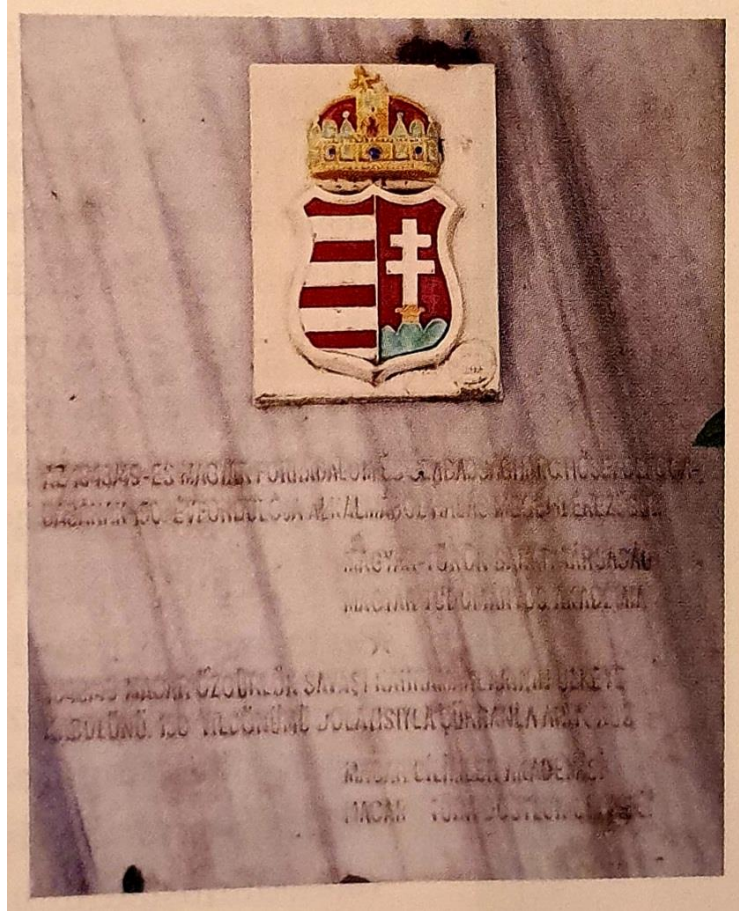 AZ 1848/49-ES MAGYAR FORRADALOM ÉS SZABADSÁGHARC HŐSEI BEFOGA-
DÁSÁNAK 150. ÉVFORDULÓJA ALKALMÁBÓL HÁLÁS MEGEMLÉKEZÉSÜL
MAGYAR-TÖRÖK BARÁTI TÁRSASÁG
MAGYAR TUDOMÁNYOS AKADÉMIA
1848/49 MACAR ÖZGÜRLÜK SAVAŞI KAHRAMANLARININ ÜLKEYE
KABULÜNÜ, 150 YILDÖNÜMÜ DOLAYISIYLA ŞÜKRANLA ANIYORUZ
MACAR BİLİMLER AKADEMİSİ
MACAR - TÜRK DOSTLUK DERNEĞİ